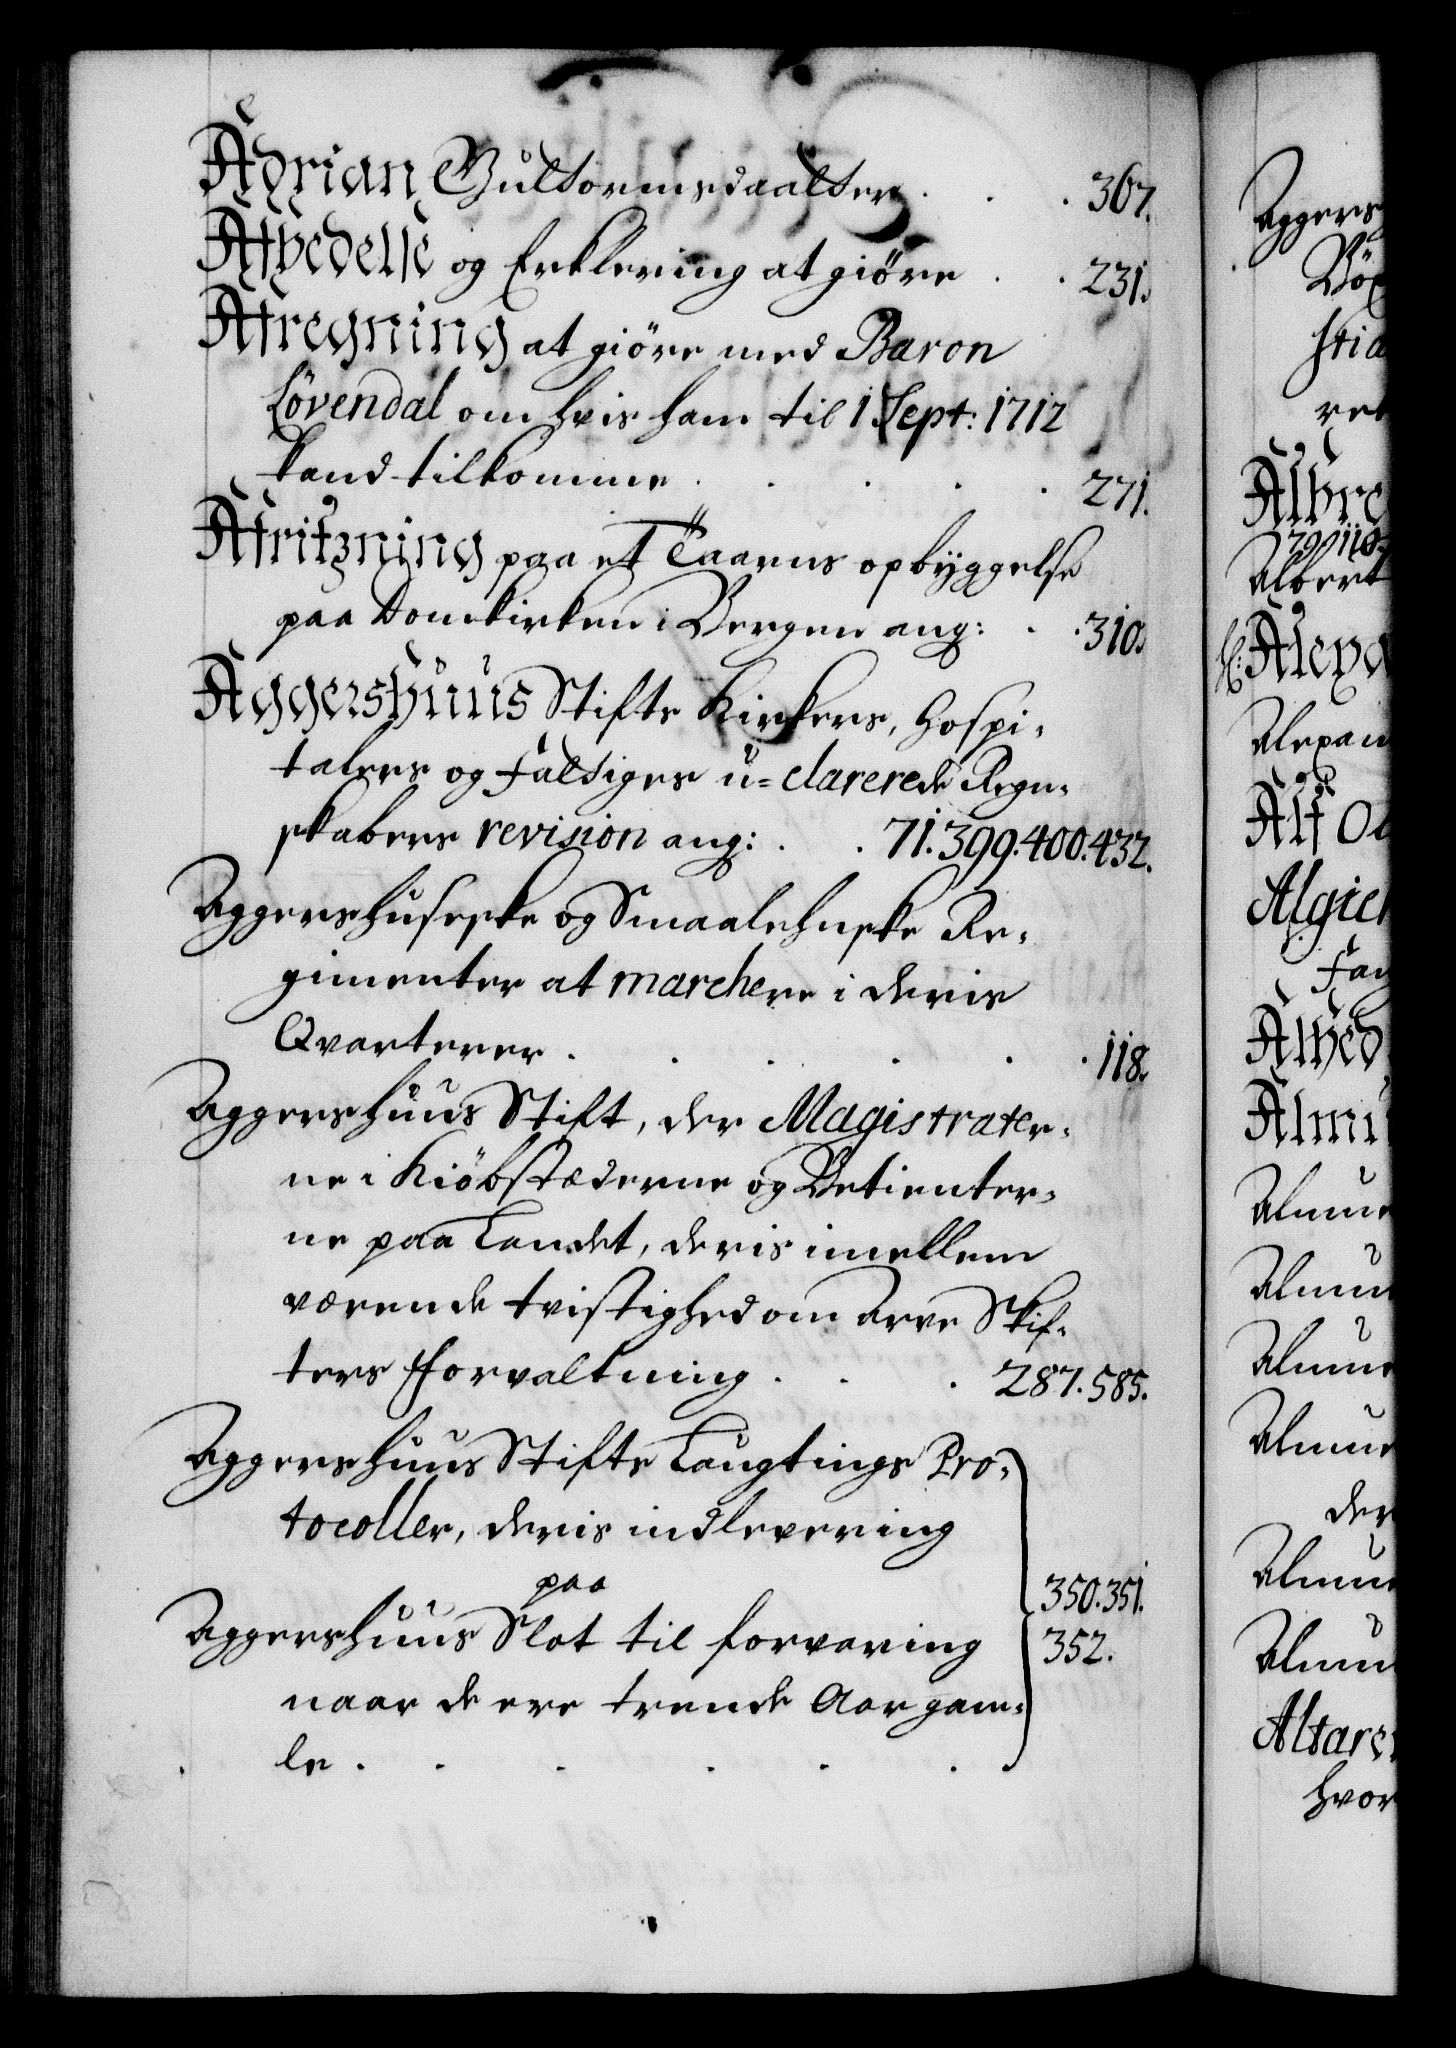 Adrian Gultormsdaatter . . . 367.
Afbedelse og Erklering at giöre . . 231.
Afregning at giöre med Baron
Lövendal om hvis ham til 1 Sept: 1712
kand tilkomme . . . . . 271.
Afritzning paa et Taarns opbyggelse
paa Domkirken i Bergen ang: . . 310.
Aggershuus Stifts Kirkers, Hospi-
talers og fattiges u=clarerede Regn-
skabers revision ang: . . 71. 399. 400. 432.
Aggershuseske og Smaalehnske Re-
gimenter at marchere i deris
Qvarterer . . . . . . 118.
Aggershuus Stift, der Magistrater-
ne i Kiöbstæderne og Betienter-
ne paa Landet, deris imellem
værende tvistighed om Arve Skif-
ters forvaltning . . . 287. 585.
Aggershuus Stifts Laugtings Pro-
tocoller, deris indlevering
paa
Aggershuus Slot til forvaring
350. 351.
352.
naar de ere trende Aar gam-
le . . . . . .
Aggers
stia
Albre
79. 110.
Albert
Alexa
Alexan
Alf Ol
Algier
Fan
Alhed
Almu
Almue
Almue
Almue
Almue
der
Almue
Almue
Altare
hvor